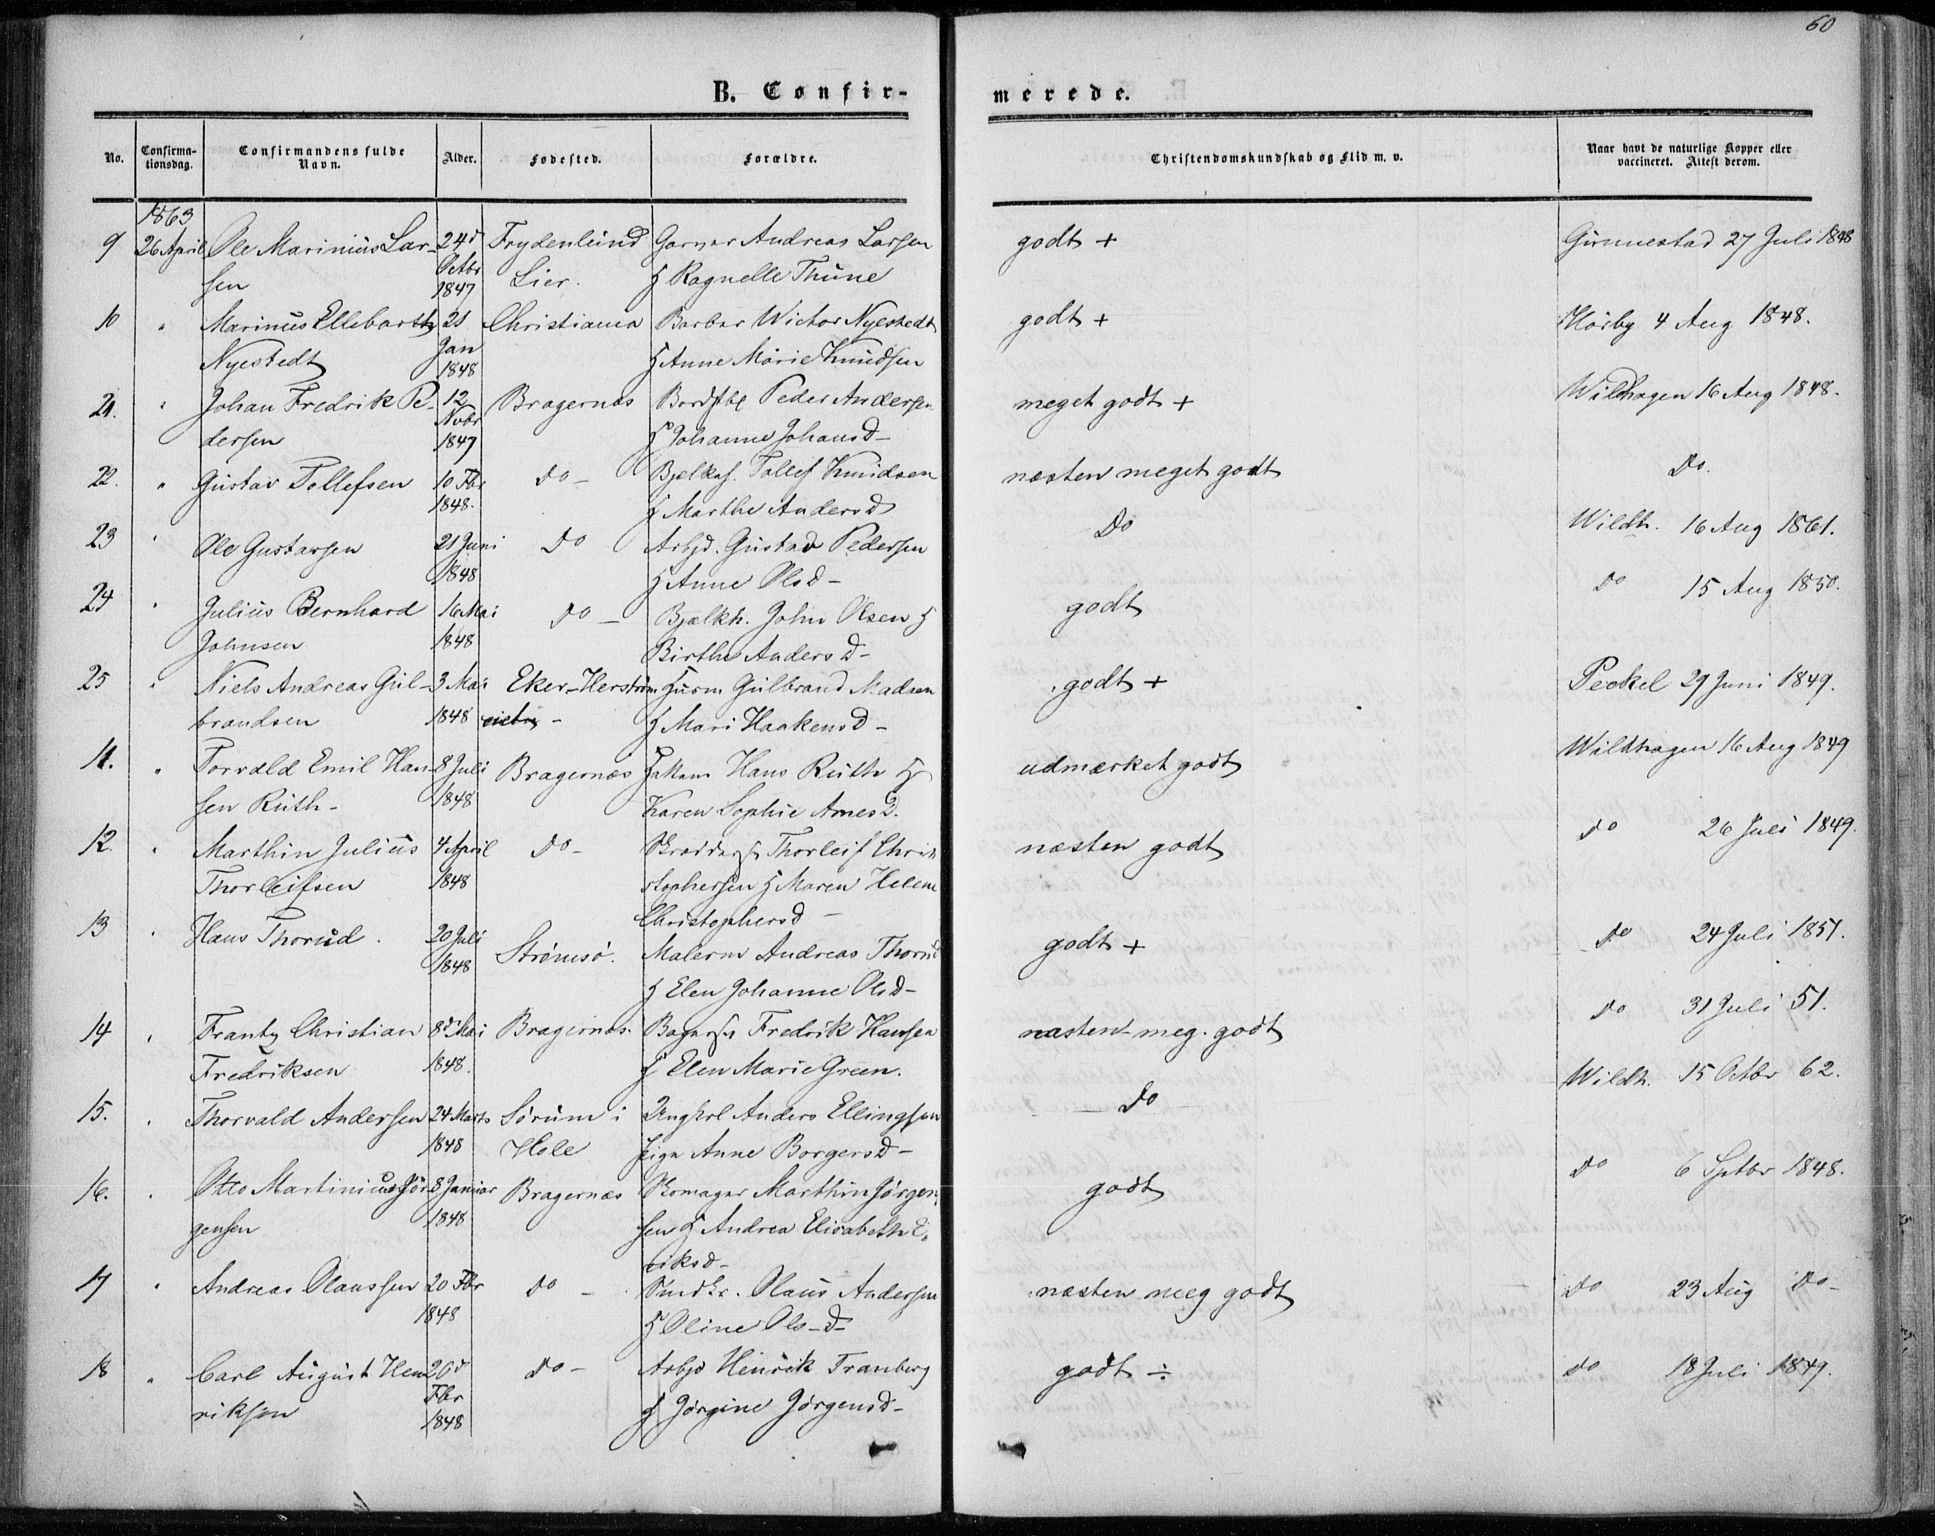 60
B. Confirmerede.
No. Confirmationsdag. Confirmandens fulde Navn. Alder. Fødested. Forældre. Christendomskundskab og Flid m. v. Naar havt de naturlige Kopper eller vaccineret. Attest derom.
1863
9 26 April Ole Marinius Lar- 24d Frydenlund Garver Andreas Larsen godt + Gunnestad 27 Juli 1848
sen Octbr 1847 Lier. Ragnelle Thune
10 " Marinus 21 Christiania Barber Wictor Nyestedt godt + Hørby 4 Aug 1848.
Nyestedt Jan 1848 Anne Marie Knudsen
21. " Johan Fredrik Pe- 12 Bragernæs Peder Andersen meget godt + Wildhagen 16 Aug 1848.
dersen Novbr 1847 Johanne Johansd-
22. " Gustav Tollefsen 10 Fbr do- Tollef Knudsen næsten meget godt Do.
1848. Marthe Andersd
23 " Ole Gustavsen 21 Juni do Arbjd. Gustav Pedersen Do Wildh. 16 Aug 1861.
1848 Anne Olsd-
24 " Julius Bernhard 16 Mai do- Bjælkh. John Olsen godt do 15 Aug 1850.
Johnsen 1848 Birthe Andersd-
25 " Niels Andreas Gul- 3 Mai Eker Gulbrand Madsen godt + Peckel 29 Juni 1849.
brandsen 1848 Mari Haakensd-
11. " Torvald Emil Han- 8 Juli Bragernæs Hans Ruth udmærket godt Wildhagen 16 Aug 1849
sen Ruth- 1848 Karen Sophie
12. " Marthin Julius 4 April do- Thorleif Chri- næsten godt do 26 Juli 1849.
Thorleifsen 1848 stophersen Maren Helene
Christophersd-
13 " Hans Thorud. 20 Juli Strømsø. Malerm Andreas Thorud godt + do 24 Juli 1851.
1848 Elen Johanne Olsd-
14 " Frantz Christian 8d Mai Bragernæs Fredrik Hansen næsten meg. godt do 31 Juli 51.
Fredriksen 1848. Elen Marie Green.
15. " Thorvald Andersen 24 Marts Sørum i Ungkrl Anders Ellingsen Do Wildh. 15 Octbr 62.
1848 Hole Pign Anne Borgersd-
16. " Otto Martinius Jør- 8 Januar Bragernæs Skomager Marthin Jørgen- godt do 6 Sptbr 1848.
gensen 1848 sen Andrea Elisabeth E-
riksd-
17 " Andreas Olaussen 20 Fbr do- Olaus Andersen næsten meg godt Do 23 Aug Do-
1848 Oline Ols-d-
18 " Carl August Hen- 20d do- Arbjd Henrik Tranberg godt ÷ do 18 Juli 1849.
riksen Fbr 1848 Jørgine Jørgensd-